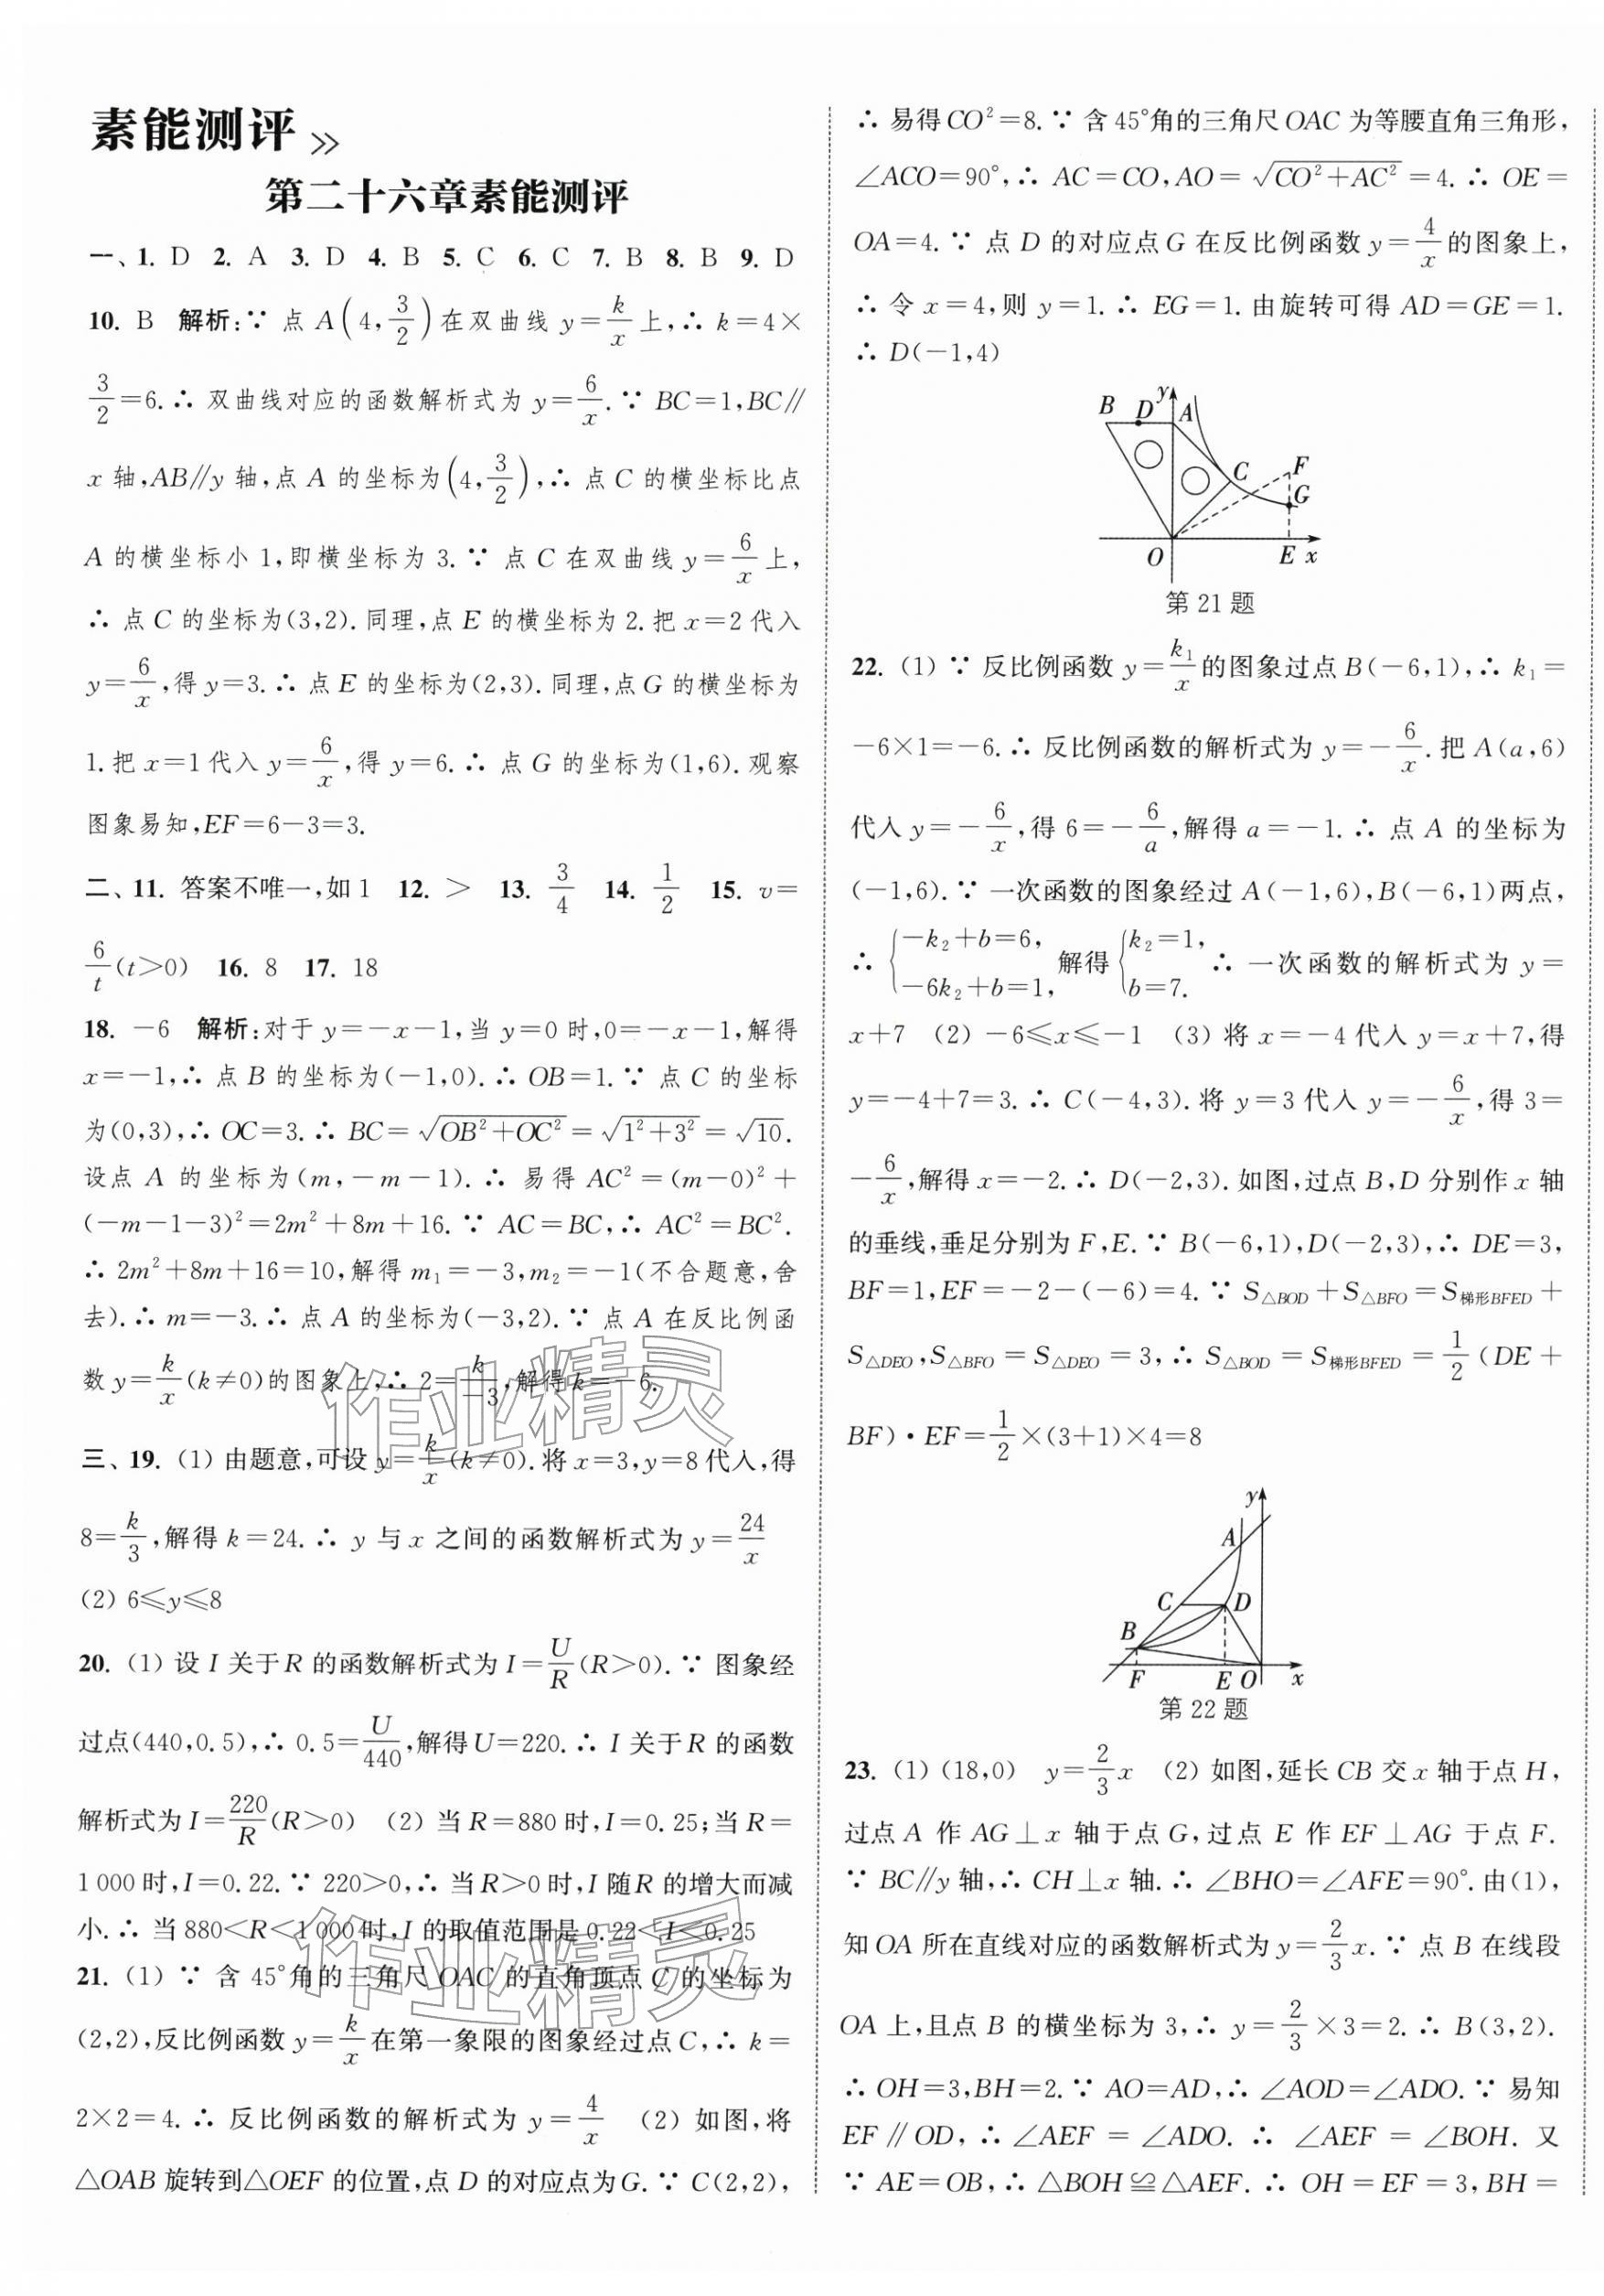 素能测评 >>
第二十六章素能测评
一、1. D 2. A 3. D 4. B 5. C 6. C 7. B 8. B 9. D
10. B 解析:∵ 点 A(4,3/2)在双曲线 y=k/x上,∴ k=4×
3/2=6.∴ 双曲线对应的函数解析式为 y=6/x.∵ BC=1,BC∥
x 轴,AB∥y 轴,点 A 的坐标为(4,3/2),∴ 点 C 的横坐标比点
A 的横坐标小 1,即横坐标为 3.∵ 点 C 在双曲线 y=6/x上,
∴ 点 C 的坐标为(3,2).同理,点 E 的横坐标为 2.把 x=2 代入
y=6/x,得 y=3.∴ 点 E 的坐标为(2,3).同理,点 G 的横坐标为
1.把 x=1 代入 y=6/x,得 y=6.∴ 点 G 的坐标为(1,6).观察
图象易知,EF=6-3=3.
二、11. 答案不唯一,如 1 12. > 13. 3/4 14. 1/2 15. v=
6/t(t>0) 16. 8 17. 18
18. -6 解析:对于 y=-x-1,当 y=0 时,0=-x-1,解得
x=-1,∴ 点 B 的坐标为(-1,0).∴ OB=1.∵ 点 C 的坐标
为(0,3),∴ OC=3.∴ BC=√(OB²+OC²)=√(1²+3²)=√10.
设点 A 的坐标为(m,-m-1).∴ 易得 AC²=(m-0)²+
(-m-1-3)²=2m²+8m+16.∵ AC=BC,∴ AC²=BC².
∴ 2m²+8m+16=10,解得 m₁=-3,m₂=-1(不合题意,舍
去).∴ m=-3.∴ 点 A 的坐标为(-3,2).∵ 点 A 在反比例函
数 y=k/x(k≠0)的图象上,∴ 2=k/-3,解得 k=-6.
三、19. (1) 由题意,可设 y=k/x(k≠0).将 x=3,y=8 代入,得
8=k/3,解得 k=24.∴ y 与 x 之间的函数解析式为 y=24/x
(2) 6≤y≤8
20. (1) 设 I 关于 R 的函数解析式为 I=U/R(R>0).∵ 图象经
过点(440,0.5),∴ 0.5=U/440,解得 U=220.∴ I 关于 R 的函数
解析式为 I=220/R(R>0) (2) 当 R=880 时,I=0.25;当 R=
1 000 时,I=0.22.∵ 220>0,∴ 当 R>0 时,I 随 R 的增大而减
小.∴ 当 880<R<1 000 时,I 的取值范围是 0.22<I<0.25
21. (1) ∵ 含 45°角的三角尺 OAC 的直角顶点 C 的坐标为
(2,2),反比例函数 y=k/x在第一象限的图象经过点 C,∴ k=
2×2=4.∴ 反比例函数的解析式为 y=4/x (2) 如图,将
△OAB 旋转到△OEF 的位置,点 D 的对应点为 G.∵ C(2,2),
∴ 易得 CO²=8.∵ 含 45°角的三角尺 OAC 为等腰直角三角形,
∠ACO=90°,∴ AC=CO,AO=√(CO²+AC²)=4.∴ OE=
OA=4.∵ 点 D 的对应点 G 在反比例函数 y=4/x的图象上,
∴ 令 x=4,则 y=1.∴ EG=1.由旋转可得 AD=GE=1.
∴ D(-1,4)
B D y A
C F
G
O E x
第 21 题
22. (1) ∵ 反比例函数 y=k₁/x的图象过点 B(-6,1),∴ k₁=
-6×1=-6.∴ 反比例函数的解析式为 y=-6/x.把 A(a,6)
代入 y=-6/x,得 6=-6/a,解得 a=-1.∴ 点 A 的坐标为
(-1,6).∵ 一次函数的图象经过 A(-1,6),B(-6,1)两点,
∴ {-k₂+b=6, -6k₂+b=1, 解得 {k₂=1, b=7. ∴ 一次函数的解析式为 y=
x+7 (2) -6≤x≤-1 (3) 将 x=-4 代入 y=x+7,得
y=-4+7=3.∴ C(-4,3).将 y=3 代入 y=-6/x,得 3=
-6/x,解得 x=-2.∴ D(-2,3).如图,过点 B,D 分别作 x 轴
的垂线,垂足分别为 F,E.∵ B(-6,1),D(-2,3),∴ DE=3,
BF=1,EF=-2-(-6)=4.∵ S△BOD+S△BFO=S梯形BFED+
S△DEO,S△BFO=S△DEO=3,∴ S△BOD=S梯形BFED=1/2(DE+
BF)·EF=1/2×(3+1)×4=8
y
A
C D
B
F E O x
第 22 题
23. (1) (18,0) y=2/3x (2) 如图,延长 CB 交 x 轴于点 H,
过点 A 作 AG⊥x 轴于点 G,过点 E 作 EF⊥AG 于点 F.
∵ BC∥y 轴,∴ CH⊥x 轴.∴ ∠BHO=∠AFE=90°.由(1),
知 OA 所在直线对应的函数解析式为 y=2/3x.∵ 点 B 在线段
OA 上,且点 B 的横坐标为 3,∴ y=2/3×3=2.∴ B(3,2).
∴ OH=3,BH=2.∵ AO=AD,∴ ∠AOD=∠ADO.∵ 易知
EF∥OD,∴ ∠AEF=∠ADO.∴ ∠AEF=∠BOH.又
∵ AE=OB,∴ △BOH≌△AEF.∴ OH=EF=3,BH=
作业精灵
作业精灵